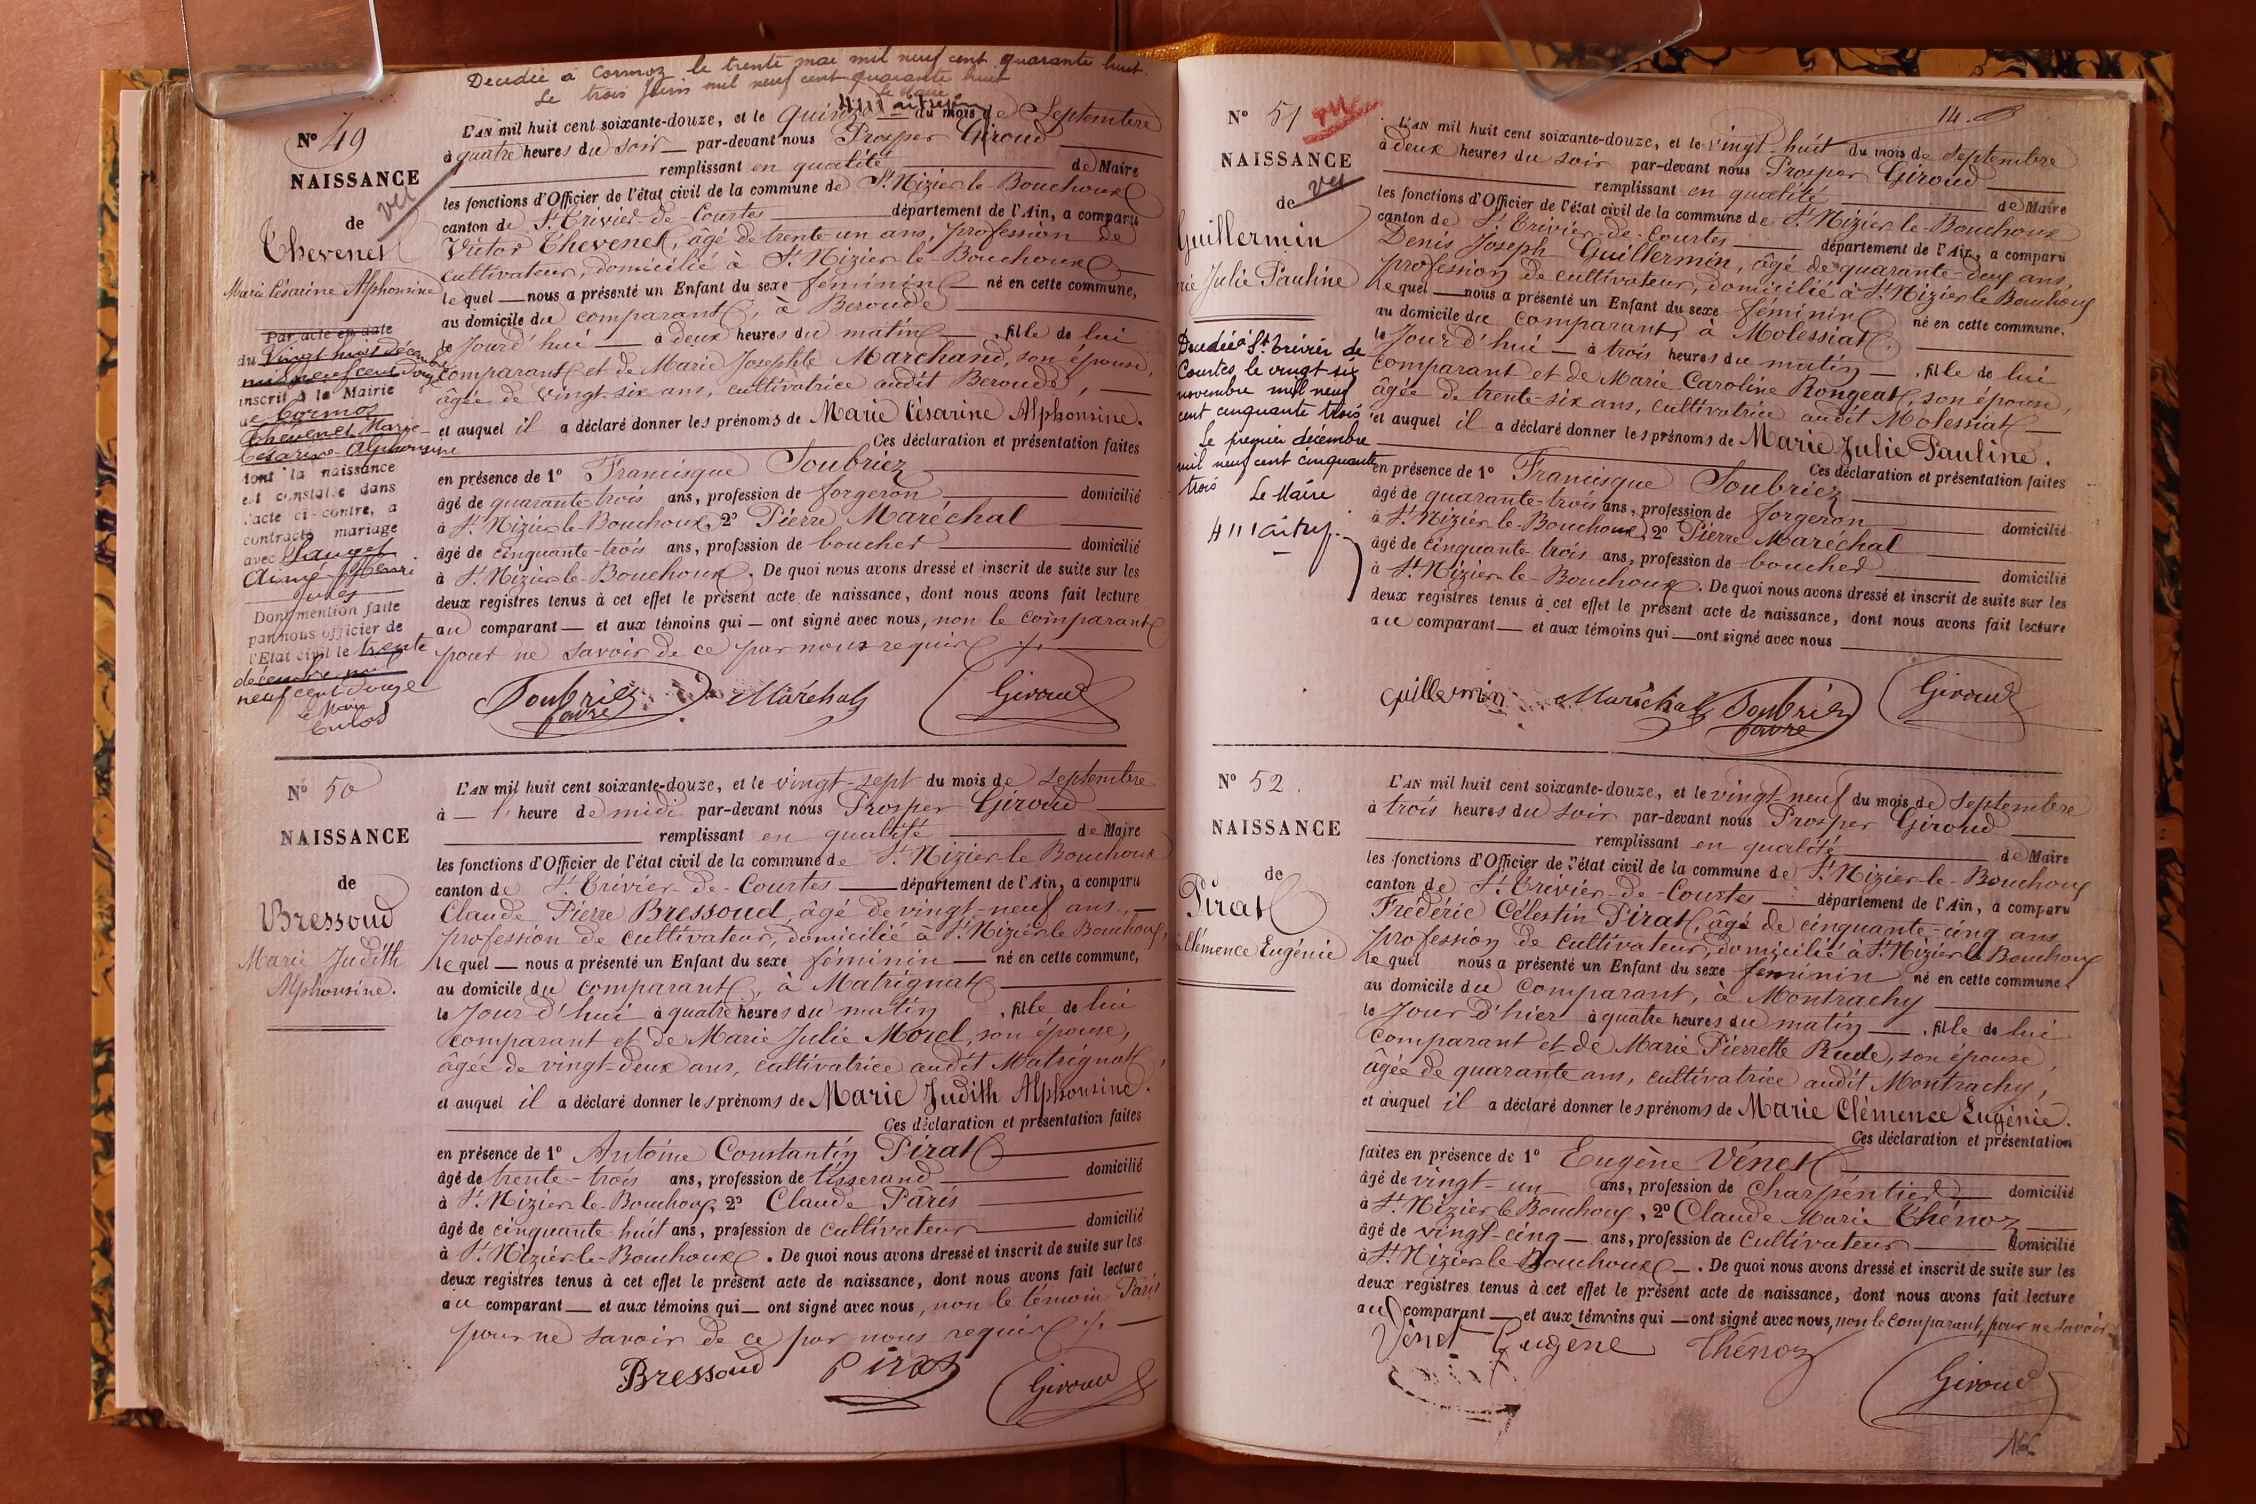 Decedée à Cormoz le trente mai mil neuf cent quarante huit.
Le trois Juin mil neuf cent quarante huit
Le Maire
Nº 49
NAISSANCE
de
vu
Thevenet
Marie Césarine Alphonsine
Par acte en date
du vingt huit décembre
mil neuf cent douze
inscrit à la Mairie
de Cormoz
Thévenet Marie-
Césarine Alphonsine
dont la naissance
est constatée dans
l'acte ci-contre, a
contracté mariage
avec Sauget
Aimé Henri
Jules
Dont mention faite
par nous officier de
l'Etat civil le trente
décembre mil
neuf cent douze
Le Maire
L'AN mil huit cent soixante-douze, et le quinze du mois de Septembre
à quatre heures du soir par-devant nous Prosper Giroud
remplissant en qualité de Maire
les fonctions d'Officier de l'état civil de la commune de St Nizier-le-Bouchoux
canton de St Trivier-de-Courtes département de l'Ain, a comparu
Victor Thevenet, âgé de trente-un ans, profession de
cultivateur, domicilié à St Nizier le Bouchoux
lequel nous a présenté un Enfant du sexe féminin né en cette commune,
au domicile du comparant, à Beroude
le jourd'hui à deux heures du matin, fille de lui
comparant et de Marie Josephte Marchand, son épouse,
âgée de vingt-six ans, cultivatrice audit Beroude,
et auquel il a déclaré donner les prénoms de Marie Césarine Alphonsine.
Ces déclaration et présentation faites
en présence de 1º Francisque Soubriez
âgé de quarante-trois ans, profession de forgeron domicilié
à St Nizier-le-Bouchoux, 2º Pierre Maréchal
âgé de cinquante-trois ans, profession de boucher domicilié
à St Nizier-le-Bouchoux. De quoi nous avons dressé et inscrit de suite sur les
deux registres tenus à cet effet le présent acte de naissance, dont nous avons fait lecture
au comparant et aux témoins qui ont signé avec nous, non le comparant
pour ne savoir de ce par nous requis
Soubriez favre Maréchal Giroud
Nº 50
NAISSANCE
de
Bressoud
Marie Judith
Alphonsine.
L'AN mil huit cent soixante-douze, et le vingt-sept du mois de septembre
à l'heure de midi par-devant nous Prosper Giroud
remplissant en qualité de Maire
les fonctions d'Officier de l'état civil de la commune de St Nizier-le Bouchoux
canton de St Trivier-de-Courtes département de l'Ain, a comparu
Claude Pierre Bressoud, âgé de vingt-neuf ans,
profession de cultivateur, domicilié à St Nizier le Bouchoux,
lequel nous a présenté un Enfant du sexe féminin né en cette commune,
au domicile du comparant, à Matrignat
le jour d'hui à quatre heures du matin, fille de lui
comparant et de Marie Julie Morel, son épouse,
âgée de vingt-deux ans, cultivatrice audit Matrignat,
et auquel il a déclaré donner les prénoms de Marie Judith Alphonsine.
Ces déclaration et présentation faites
en présence de 1º Antoine Constantin Pirat
âgé de trente-trois ans, profession de tisserand domicilié
à St Nizier-le-Bouchoux, 2º Claude Pâris
âgé de cinquante-huit ans, profession de cultivateur domicilié
à St Nizier-le-Bouchoux. De quoi nous avons dressé et inscrit de suite sur les
deux registres tenus à cet effet le présent acte de naissance, dont nous avons fait lecture
au comparant et aux témoins qui ont signé avec nous, non le témoin Pâris
pour ne savoir de ce par nous requis
Bressoud Pirat Giroud
14.
Nº 51
NAISSANCE
de
vu
Guillermin
Julie Pauline
Decedée à St Trivier de
Courtes le vingt six
novembre mil neuf
cent cinquante trois
Le premier décembre
mil neuf cent cinquante
trois
Le Maire
L'AN mil huit cent soixante-douze, et le vingt-huit du mois de septembre
à deux heures du soir par-devant nous Prosper Giroud
remplissant en qualité de Maire
les fonctions d'Officier de l'état civil de la commune de St Nizier-le-Bouchoux
canton de St Trivier-de-Courtes département de l'Ain, a comparu
Denis Joseph Guillermin, âgé de quarante-deux ans,
profession de cultivateur, domicilié à St Nizier le Bouchoux
lequel nous a présenté un Enfant du sexe féminin né en cette commune,
au domicile du comparant, à Molessiat
le jour d'hui à trois heures du matin, fille de lui
comparant et de Marie Caroline Rongeat, son épouse,
âgée de trente-six ans, cultivatrice audit Molessiat
et auquel il a déclaré donner les prénoms de Marie Julie Pauline.
Ces déclaration et présentation faites
en présence de 1º Francisque Soubriez
âgé de quarante-trois ans, profession de forgeron domicilié
à St Nizier-le-Bouchoux, 2º Pierre Maréchal
âgé de cinquante-trois ans, profession de boucher domicilié
à St Nizier-le-Bouchoux. De quoi nous avons dressé et inscrit de suite sur les
deux registres tenus à cet effet le présent acte de naissance, dont nous avons fait lecture
au comparant et aux témoins qui ont signé avec nous
Guillermin Maréchal Soubriez favre Giroud
Nº 52.
NAISSANCE
de
Pirat
Clémence Eugénie
L'AN mil huit cent soixante-douze, et le vingt-neuf du mois de Septembre
à trois heures du soir par-devant nous Prosper Giroud
remplissant en qualité de Maire
les fonctions d'Officier de l'état civil de la commune de St Nizier-le-Bouchoux
canton de St Trivier-de-Courtes département de l'Ain, a comparu
Fredéric Célestin Pirat, âgé de cinquante-cinq ans
profession de cultivateur, domicilié à St Nizier le Bouchoux
lequel nous a présenté un Enfant du sexe féminin né en cette commune
au domicile du comparant, à Montrachy
le jour d'hier à quatre heures du matin, fille de lui
comparant et de Marie Pierrette Rude, son épouse,
âgée de quarante ans, cultivatrice audit Montrachy,
et auquel il a déclaré donner les prénoms de Marie Clémence Eugénie.
Ces déclaration et présentation
faites en présence de 1º Eugène Vénet
âgé de vingt-un ans, profession de charpentier domicilié
à St Nizier le Bouchoux, 2º Claude Marie Thénoz
âgé de vingt-cinq ans, profession de cultivateur domicilié
à St Nizier-le-Bouchoux. De quoi nous avons dressé et inscrit de suite sur les
deux registres tenus à cet effet le présent acte de naissance, dont nous avons fait lecture
au comparant et aux témoins qui ont signé avec nous, non le comparant, pour ne savoir
Vénet Eugène Thénoz
Giroud